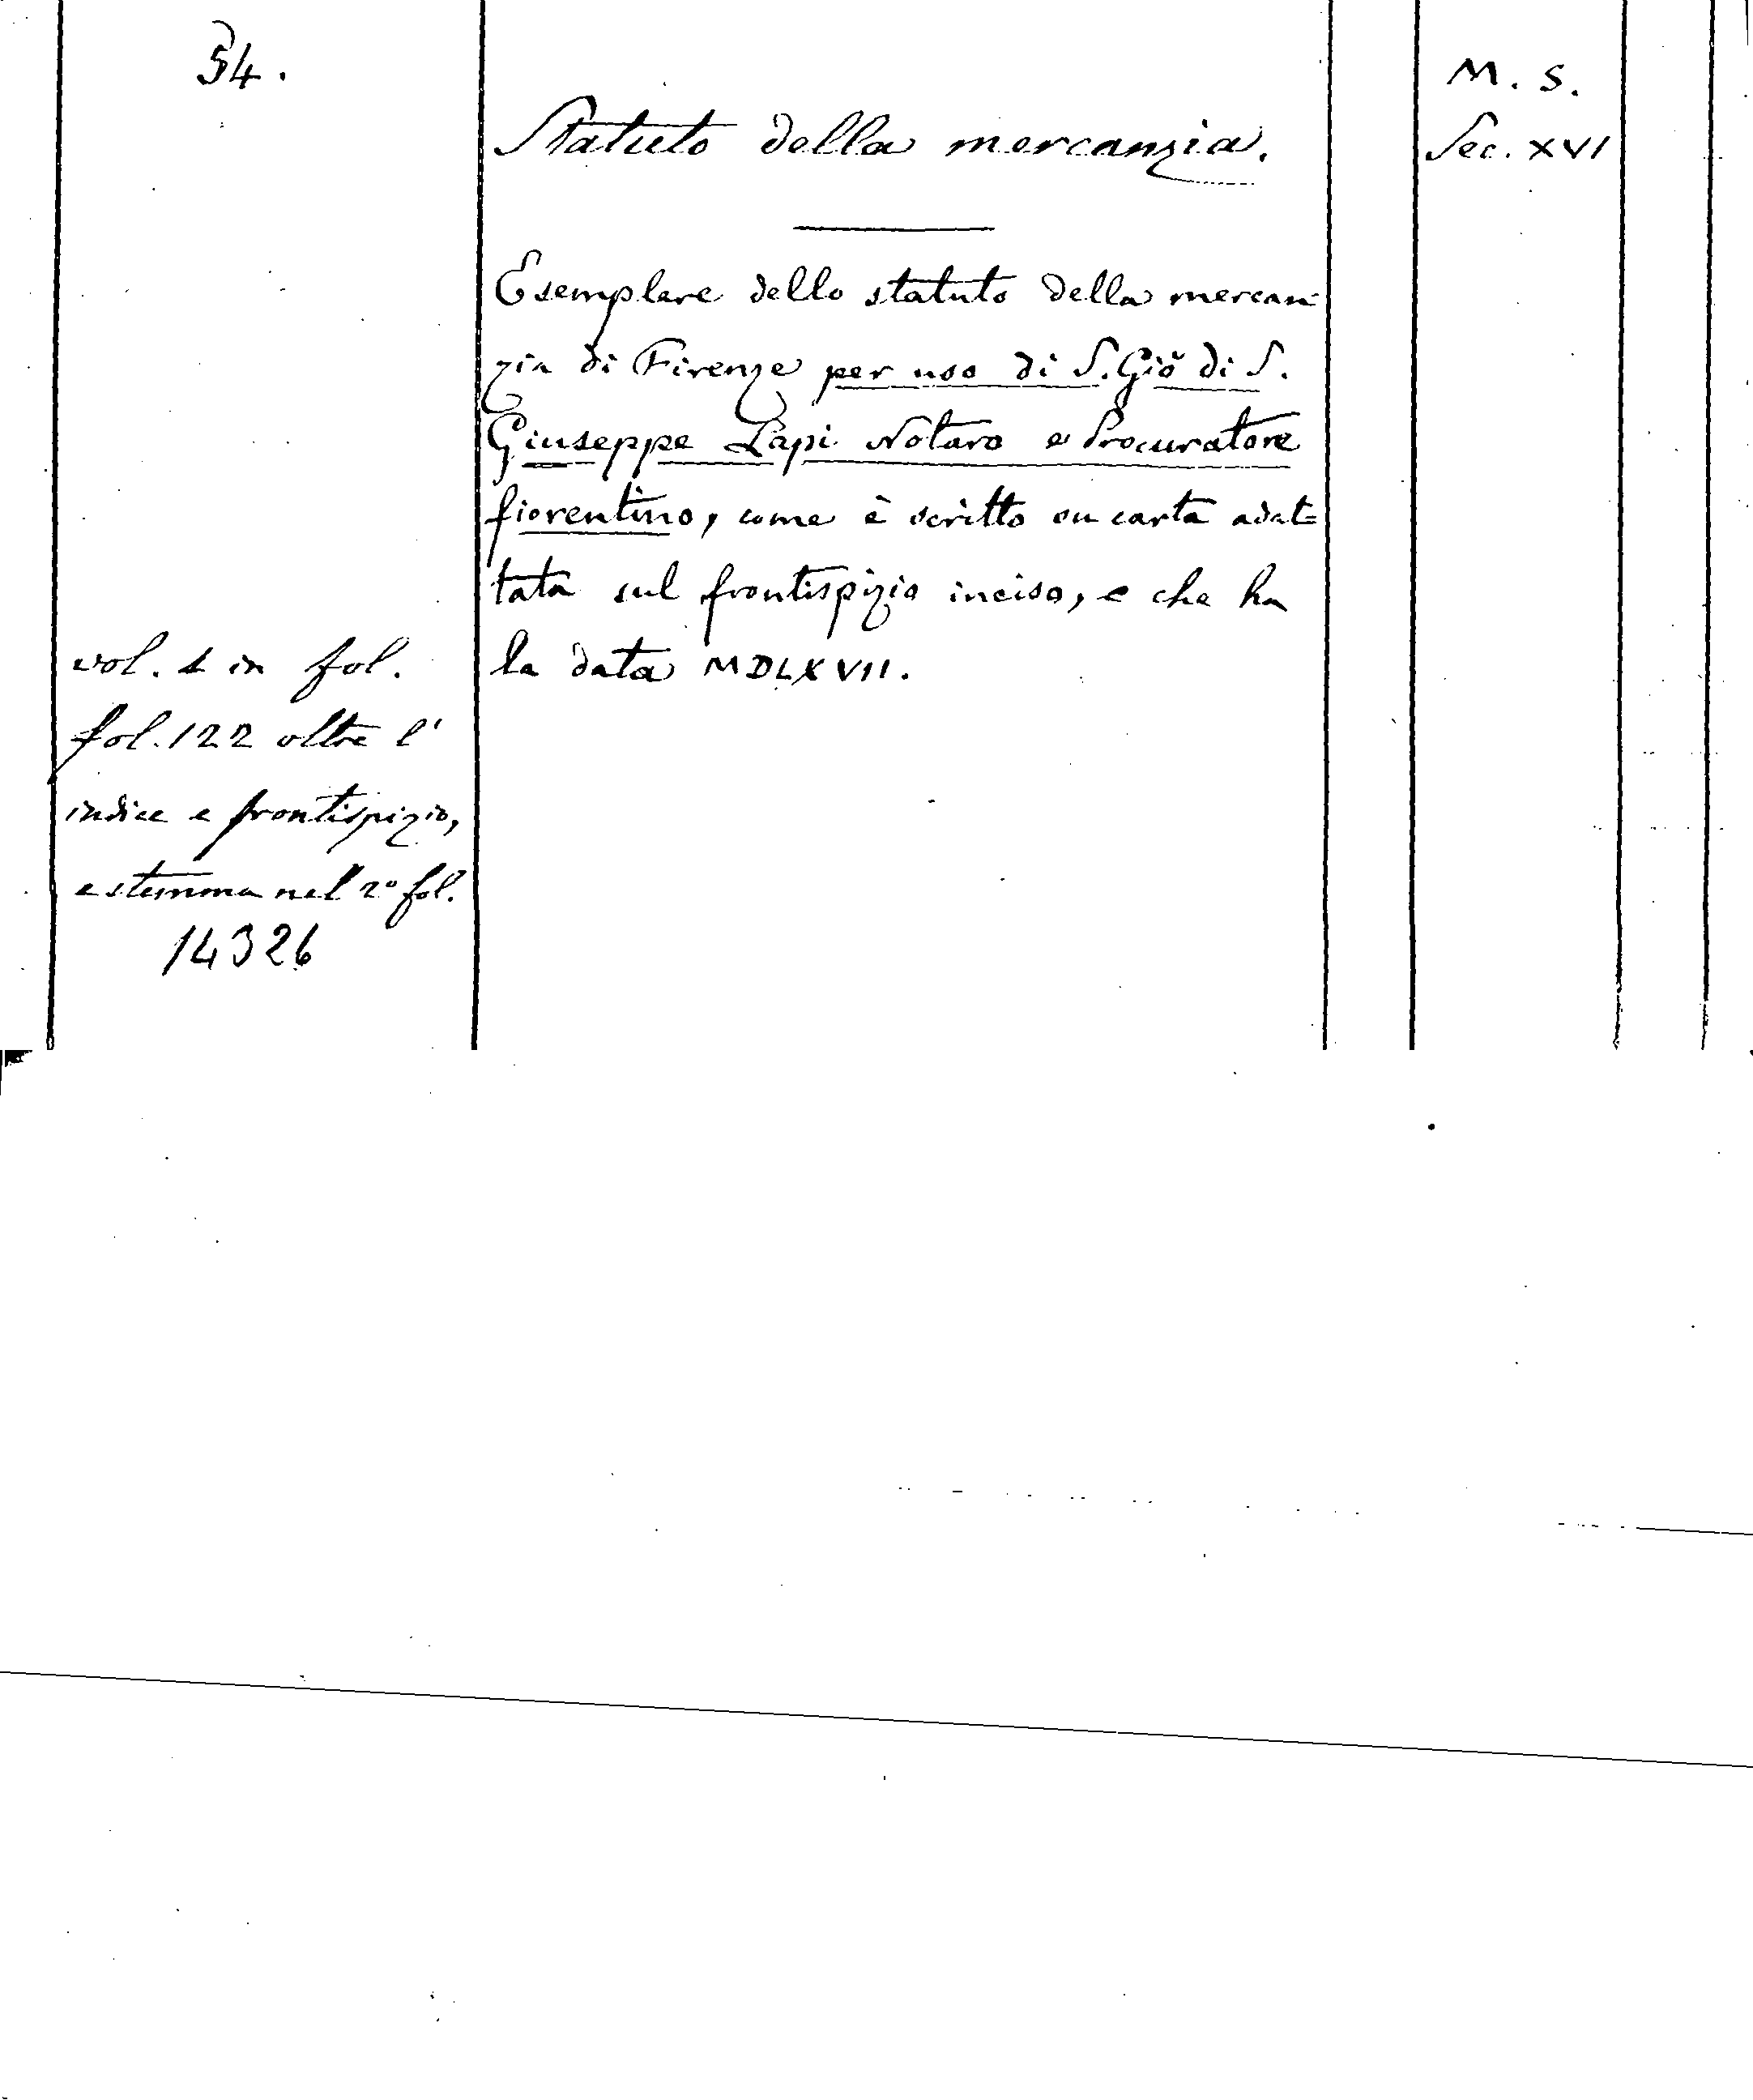 54.
M. S.
Statuto della mercanzia.
Sec. XVI
Esemplare dello statuto della mercan
zia di Firenze per uso di S. Giō di S.
Giuseppe Lapi Notaro e Procuratore
fiorentino, come è scritto su carta adat=
tata sul frontispizio inciso, e che ha
la data MDLXVII.
vol. 1 in fol.
fol. 122 oltre l'
indice e frontispizio,
e stemma nel 2º fol.
14326